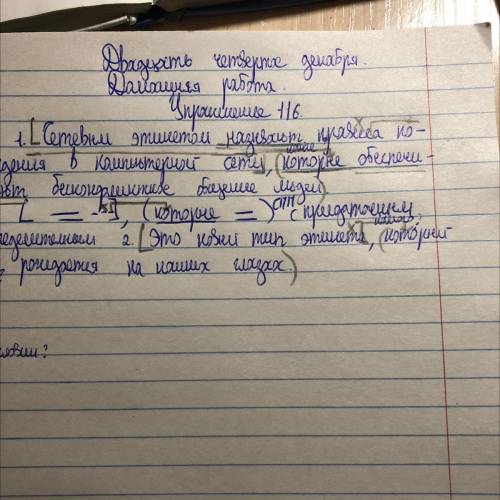 Двадцать четвертое декабря.
Домашняя работа.
Упражнение 116.
1. [Сетевым этикетом называют правила по-
дения в компьютерной сети], (которые обеспечи-
ют бесконфликтное общение людей)
[ ], (которые = ) СПП с придаточным
ределительным 2. [Это новый тип этикета], (который
рождается на наших глазах.)
ловии?